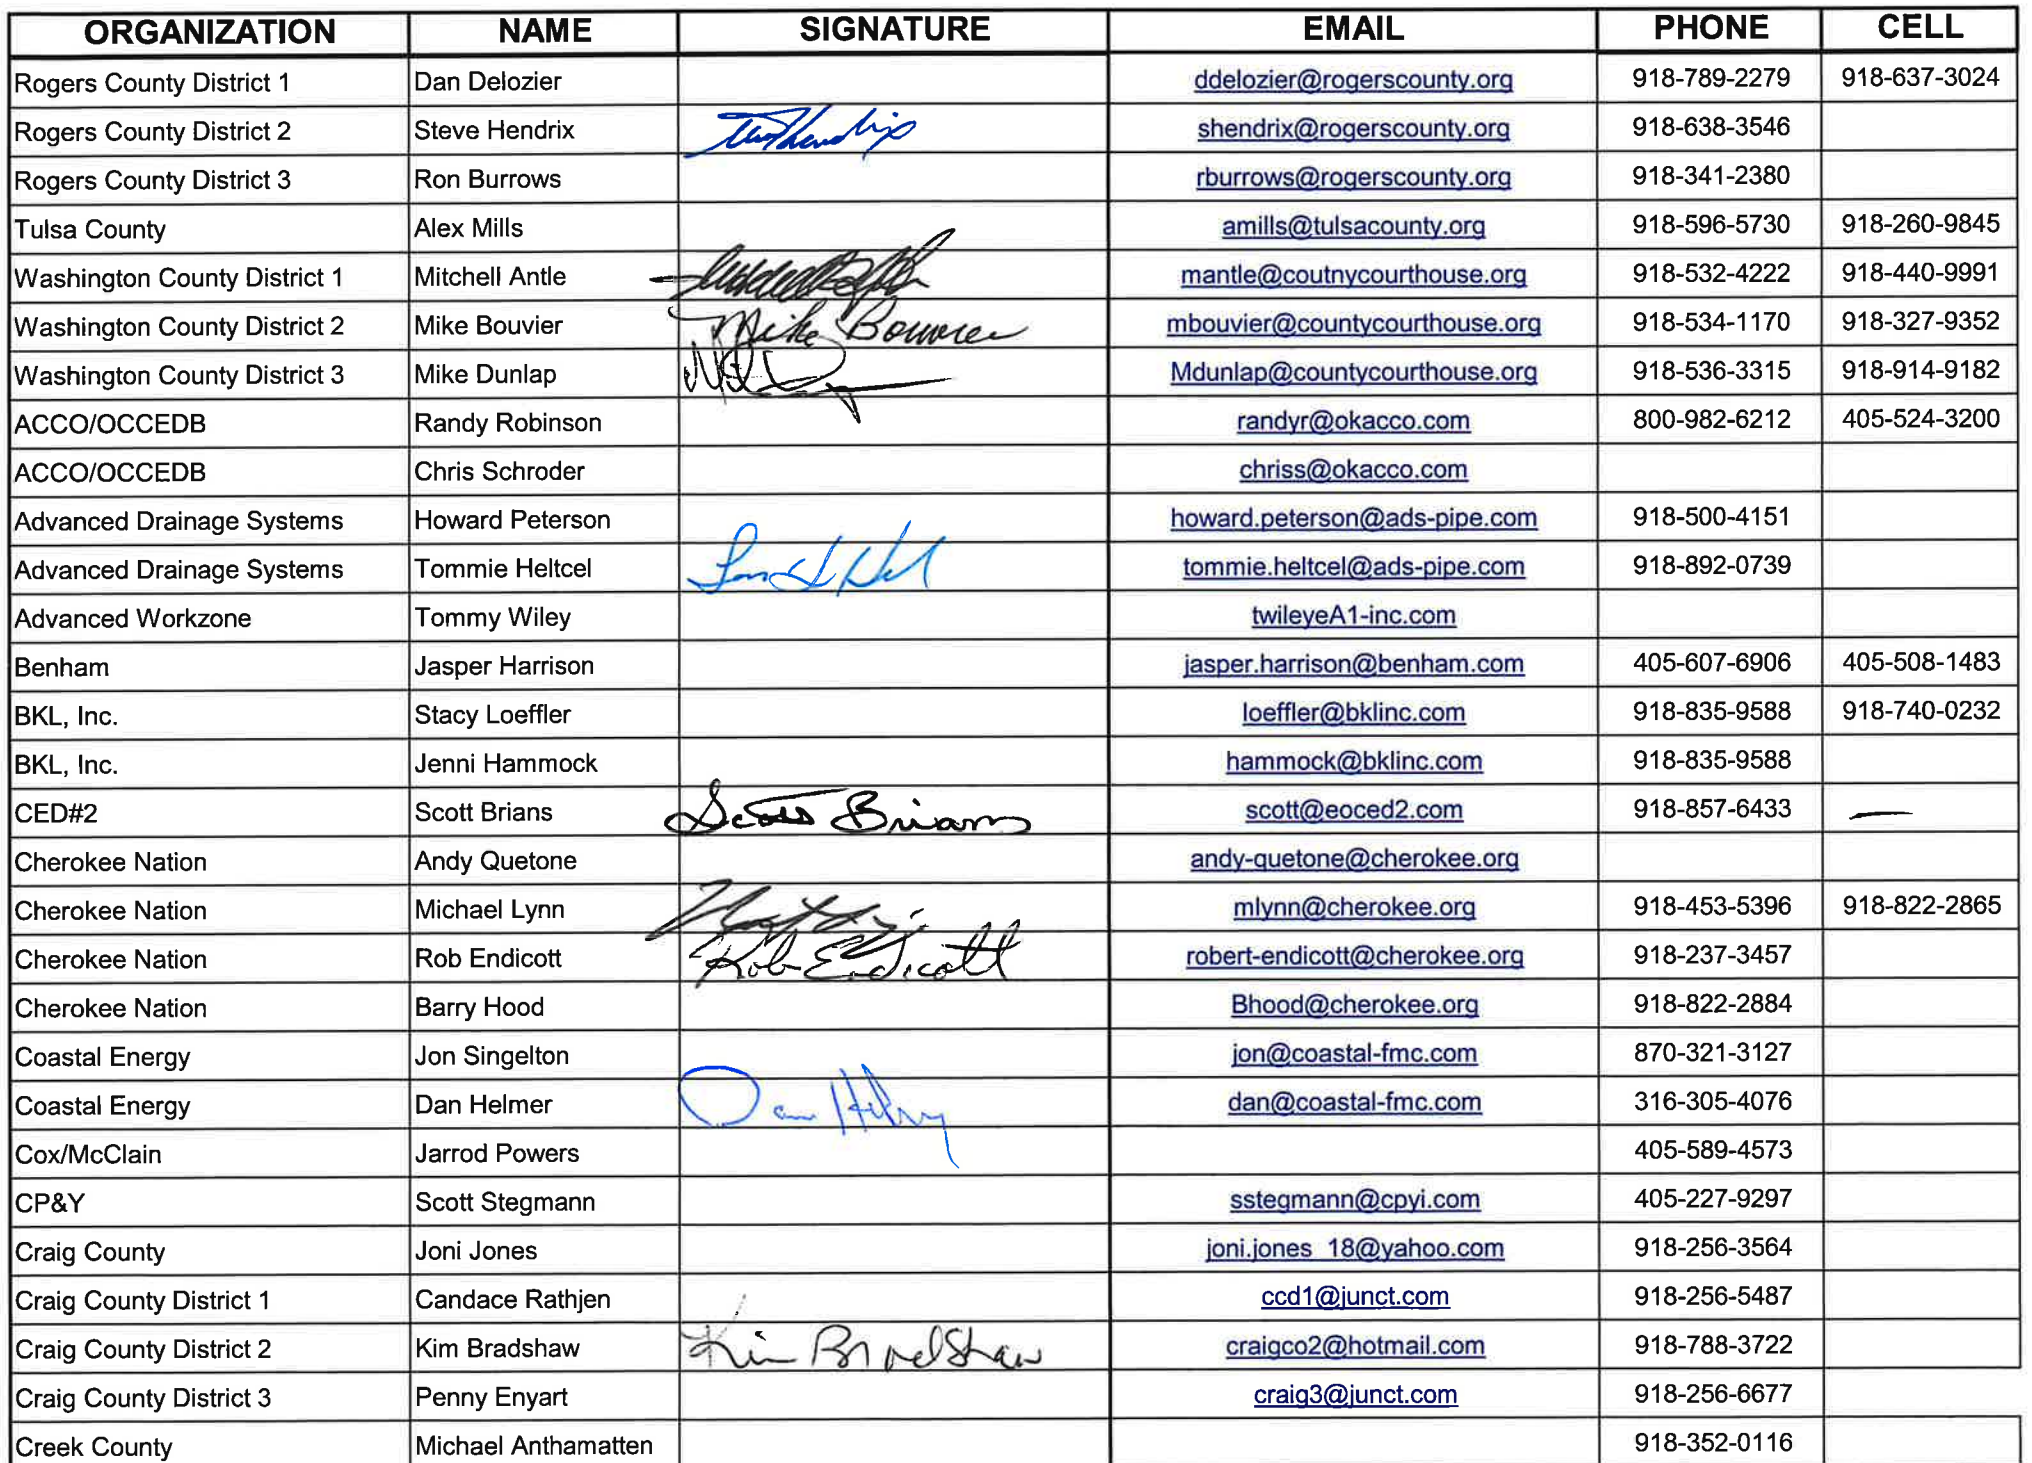 ORGANIZATION NAME SIGNATURE EMAIL PHONE CELL
Rogers County District 1 Dan Delozier ddelozier@rogerscounty.org 918-789-2279 918-637-3024
Rogers County District 2 Steve Hendrix shendrix@rogerscounty.org 918-638-3546
Rogers County District 3 Ron Burrows rburrows@rogerscounty.org 918-341-2380
Tulsa County Alex Mills amills@tulsacounty.org 918-596-5730 918-260-9845
Washington County District 1 Mitchell Antle mantle@coutnycourthouse.org 918-532-4222 918-440-9991
Washington County District 2 Mike Bouvier Mike Bouvier mbouvier@countycourthouse.org 918-534-1170 918-327-9352
Washington County District 3 Mike Dunlap Mdunlap@countycourthouse.org 918-536-3315 918-914-9182
ACCO/OCCEDB Randy Robinson randyr@okacco.com 800-982-6212 405-524-3200
ACCO/OCCEDB Chris Schroder chriss@okacco.com
Advanced Drainage Systems Howard Peterson howard.peterson@ads-pipe.com 918-500-4151
Advanced Drainage Systems Tommie Heltcel tommie.heltcel@ads-pipe.com 918-892-0739
Advanced Workzone Tommy Wiley twileyeA1-inc.com
Benham Jasper Harrison jasper.harrison@benham.com 405-607-6906 405-508-1483
BKL, Inc. Stacy Loeffler loeffler@bklinc.com 918-835-9588 918-740-0232
BKL, Inc. Jenni Hammock hammock@bklinc.com 918-835-9588
CED#2 Scott Brians Scott Brians scott@eoced2.com 918-857-6433 —
Cherokee Nation Andy Quetone andy-quetone@cherokee.org
Cherokee Nation Michael Lynn mlynn@cherokee.org 918-453-5396 918-822-2865
Cherokee Nation Rob Endicott Rob Endicott robert-endicott@cherokee.org 918-237-3457
Cherokee Nation Barry Hood Bhood@cherokee.org 918-822-2884
Coastal Energy Jon Singelton jon@coastal-fmc.com 870-321-3127
Coastal Energy Dan Helmer Dan dan@coastal-fmc.com 316-305-4076
Cox/McClain Jarrod Powers 405-589-4573
CP&Y Scott Stegmann sstegmann@cpyi.com 405-227-9297
Craig County Joni Jones joni.jones_18@yahoo.com 918-256-3564
Craig County District 1 Candace Rathjen ccd1@junct.com 918-256-5487
Craig County District 2 Kim Bradshaw Kim Bradshaw craigco2@hotmail.com 918-788-3722
Craig County District 3 Penny Enyart craig3@junct.com 918-256-6677
Creek County Michael Anthamatten 918-352-0116